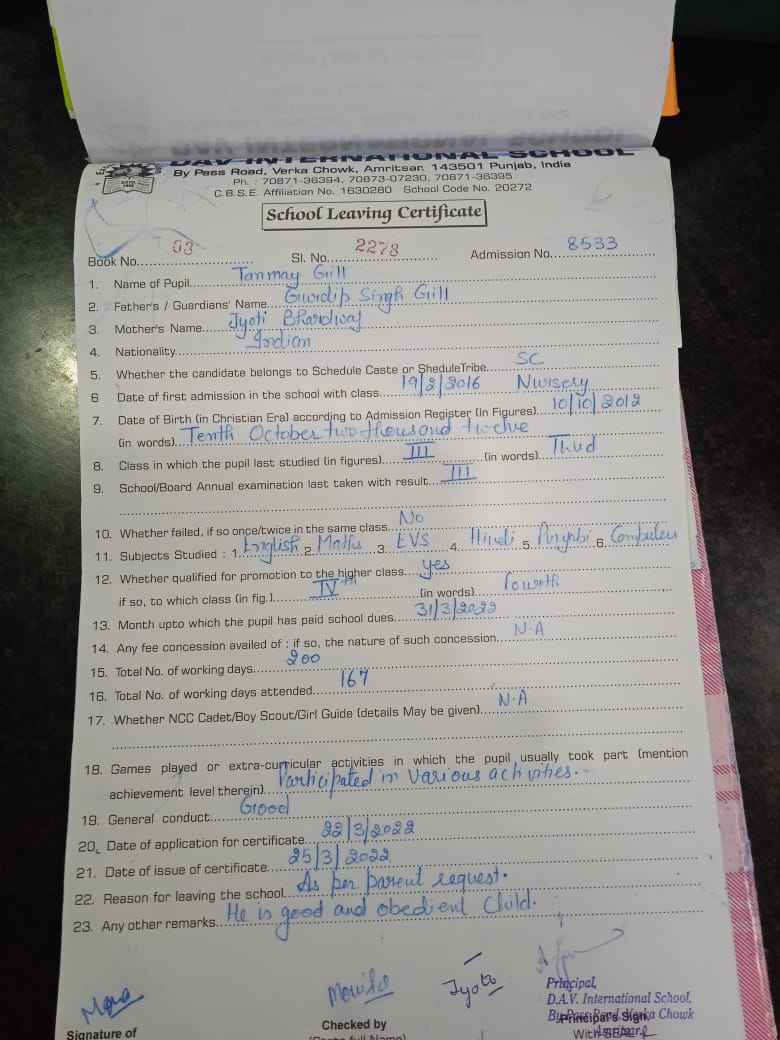 DAV INTERNATIONAL SCHOOL
By Pass Road, Verka Chowk, Amritsar, 143501 Punjab, India
Ph. : 70871-36394, 70873-07230, 70871-36395
C.B.S.E. Affiliation No. 1630280 School Code No. 20272
School Leaving Certificate
Book No. 03 Sl. No. 2278 Admission No. 8533
1. Name of Pupil Tanmay Gill
2. Father's / Guardians' Name Gurdip Singh Gill
3. Mother's Name Jyoti Bhardwaj
4. Nationality Indian
5. Whether the candidate belongs to Schedule Caste or SheduleTribe SC
6 Date of first admission in the school with class 19/2/2016 Nursery
7. Date of Birth (in Christian Era) according to Admission Register (In Figures) 10/10/2012
(in words) Tenth October two thousand twelve
8. Class in which the pupil last studied (in figures) III (in words) Third
9. School/Board Annual examination last taken with result III
10. Whether failed, if so once/twice in the same class No
11. Subjects Studied : 1. English 2. Maths 3. EVS 4. Hindi 5. Punjabi 6. Computer
12. Whether qualified for promotion to the higher class yes
if so, to which class (in fig.) IVth (in words) Fourth
13. Month upto which the pupil has paid school dues 31/3/2022
14. Any fee concession availed of : if so, the nature of such concession N.A
15. Total No. of working days 200
16. Total No. of working days attended 167
17. Whether NCC Cadet/Boy Scout/Girl Guide (details May be given) N.A
18. Games played or extra-curricular activities in which the pupil usually took part (mention
achievement level therein) Participated in various activities.
19. General conduct Good
20. Date of application for certificate 22/3/2022
21. Date of issue of certificate 25/3/2022
22. Reason for leaving the school As per parent request.
23. Any other remarks He is good and obedient child.
Jyoti
Principal,
D.A.V. International School,
By Pass Road, Verka Chowk
Principal's Sign
Amritsar
With SEAL
Signature of
Checked by